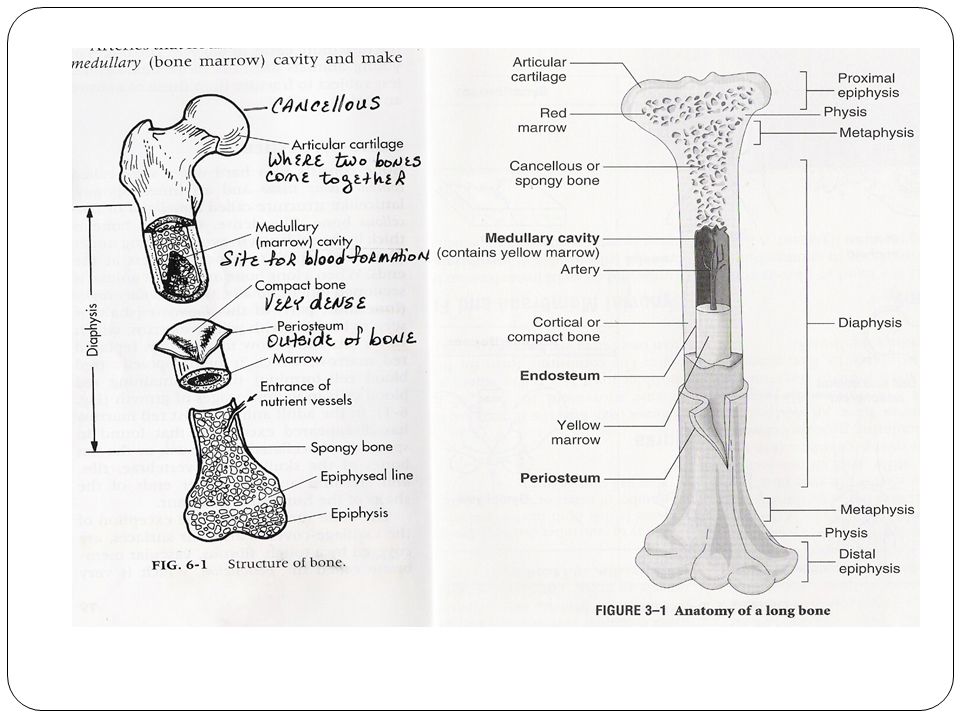 medullary (bone marrow) cavity and make
CANCELLOUS
Articular cartilage
WHERE TWO BONES
COME TOGETHER
Medullary
(marrow) cavity
SITE FOR BLOOD FORMATION
Compact bone
VERY DENSE
Periosteum
OUTSIDE OF BONE
Marrow
Entrance of
nutrient vessels
Diaphysis
Spongy bone
Epiphyseal line
Epiphysis
FIG. 6-1 Structure of bone.
Articular
cartilage
Red
marrow
Cancellous or
spongy bone
Medullary cavity
(contains yellow marrow)
Artery
Cortical or
compact bone
Endosteum
Yellow
marrow
Periosteum
Proximal
epiphysis
Physis
Metaphysis
Diaphysis
Metaphysis
Physis
Distal
epiphysis
FIGURE 3–1 Anatomy of a long bone